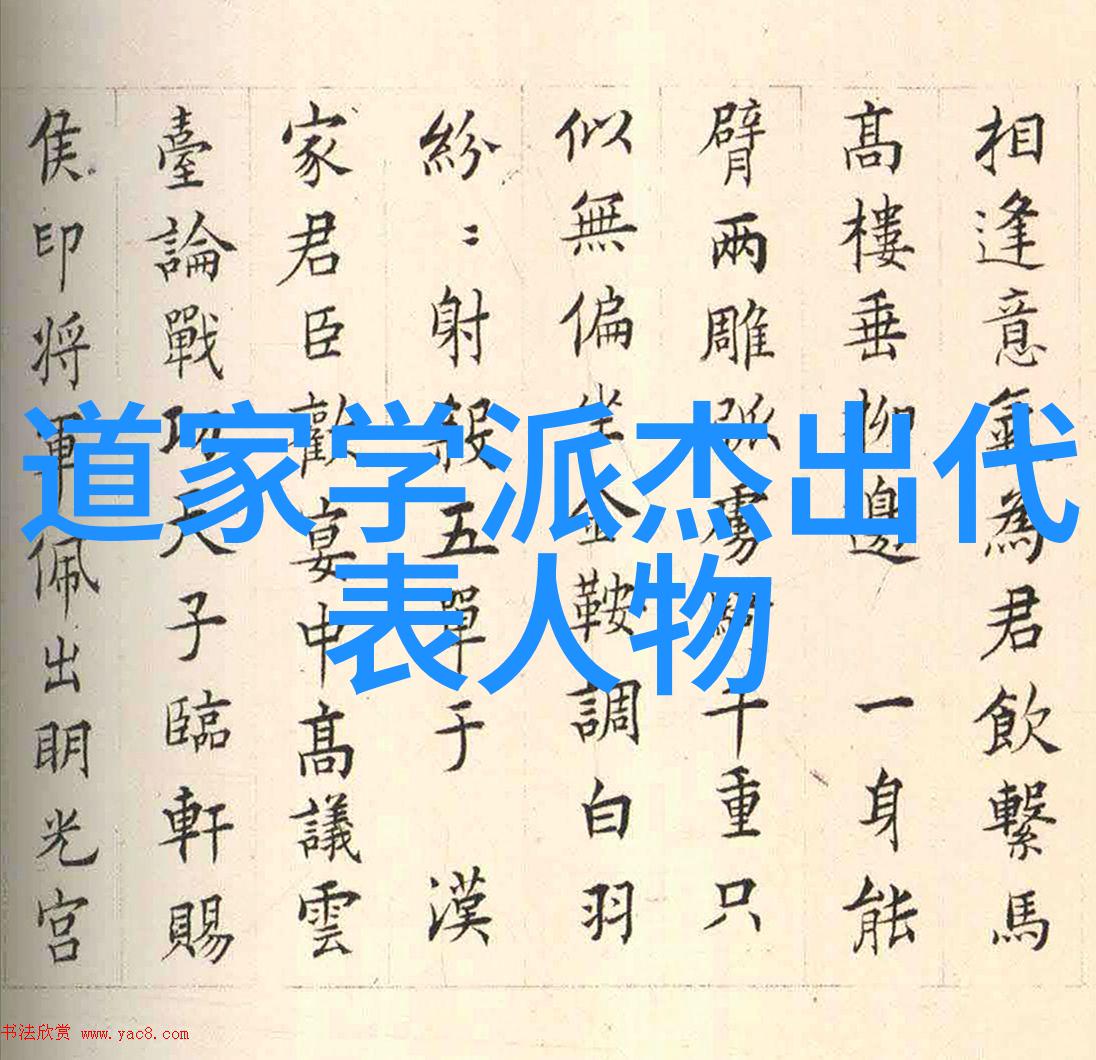 相逢意氣為君飲繫馬
髙樓垂柳邊 一身能
臂兩雕弧虜騎千重只
似無偏坐金鞍調白羽
紛〻射殺五單于 漢
家君臣歡宴中髙議雲
臺論戰功天子臨軒賜
侯印将軍佩出明光宮
道家学派杰出代
表人物
书法欣赏 www.yac8.com